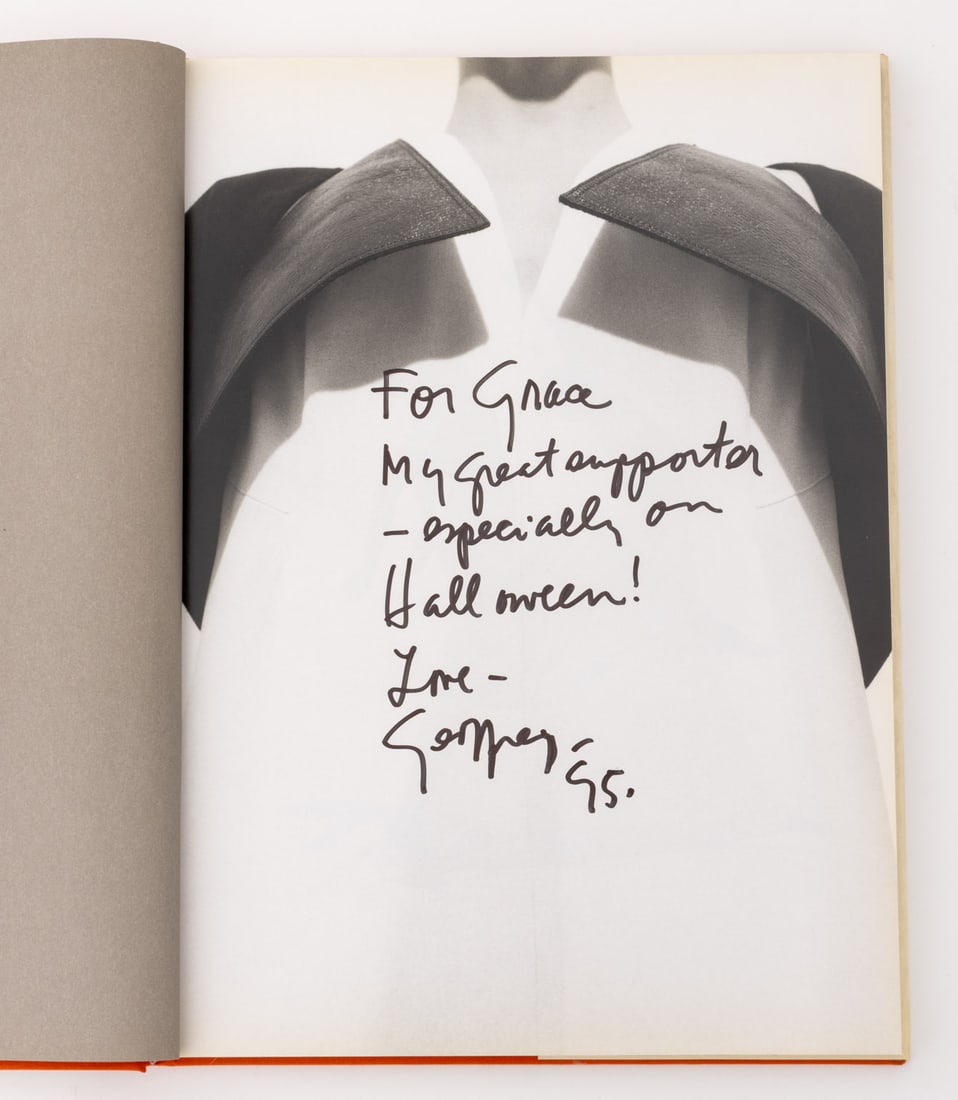 For Grace
My great supporter
– especially on
Halloween!
Love –
Geoffrey –
95.